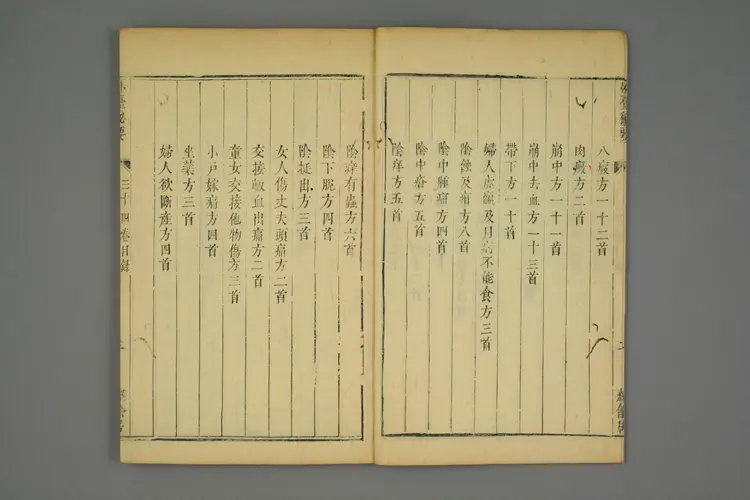 八瘕方一十二首
肉癥方二首
崩中方一十一首
崩中去血方一十三首
帶下方一十首
婦人虛羸及月病不能食方三首
陰蝕及疳方八首
陰中腫痛方四首
陰中瘡方五首
陰痒方五首
陰痒有蟲方六首
陰下脫方四首
陰挺出方三首
女人傷丈夫頭痛方二首
交接輒血出痛方二首
童女交接他物傷方三首
小戶嫁痛方四首
坐藥方三首
婦人欲斷產方四首
外臺秘要
三十四卷目錄
二
經餘居